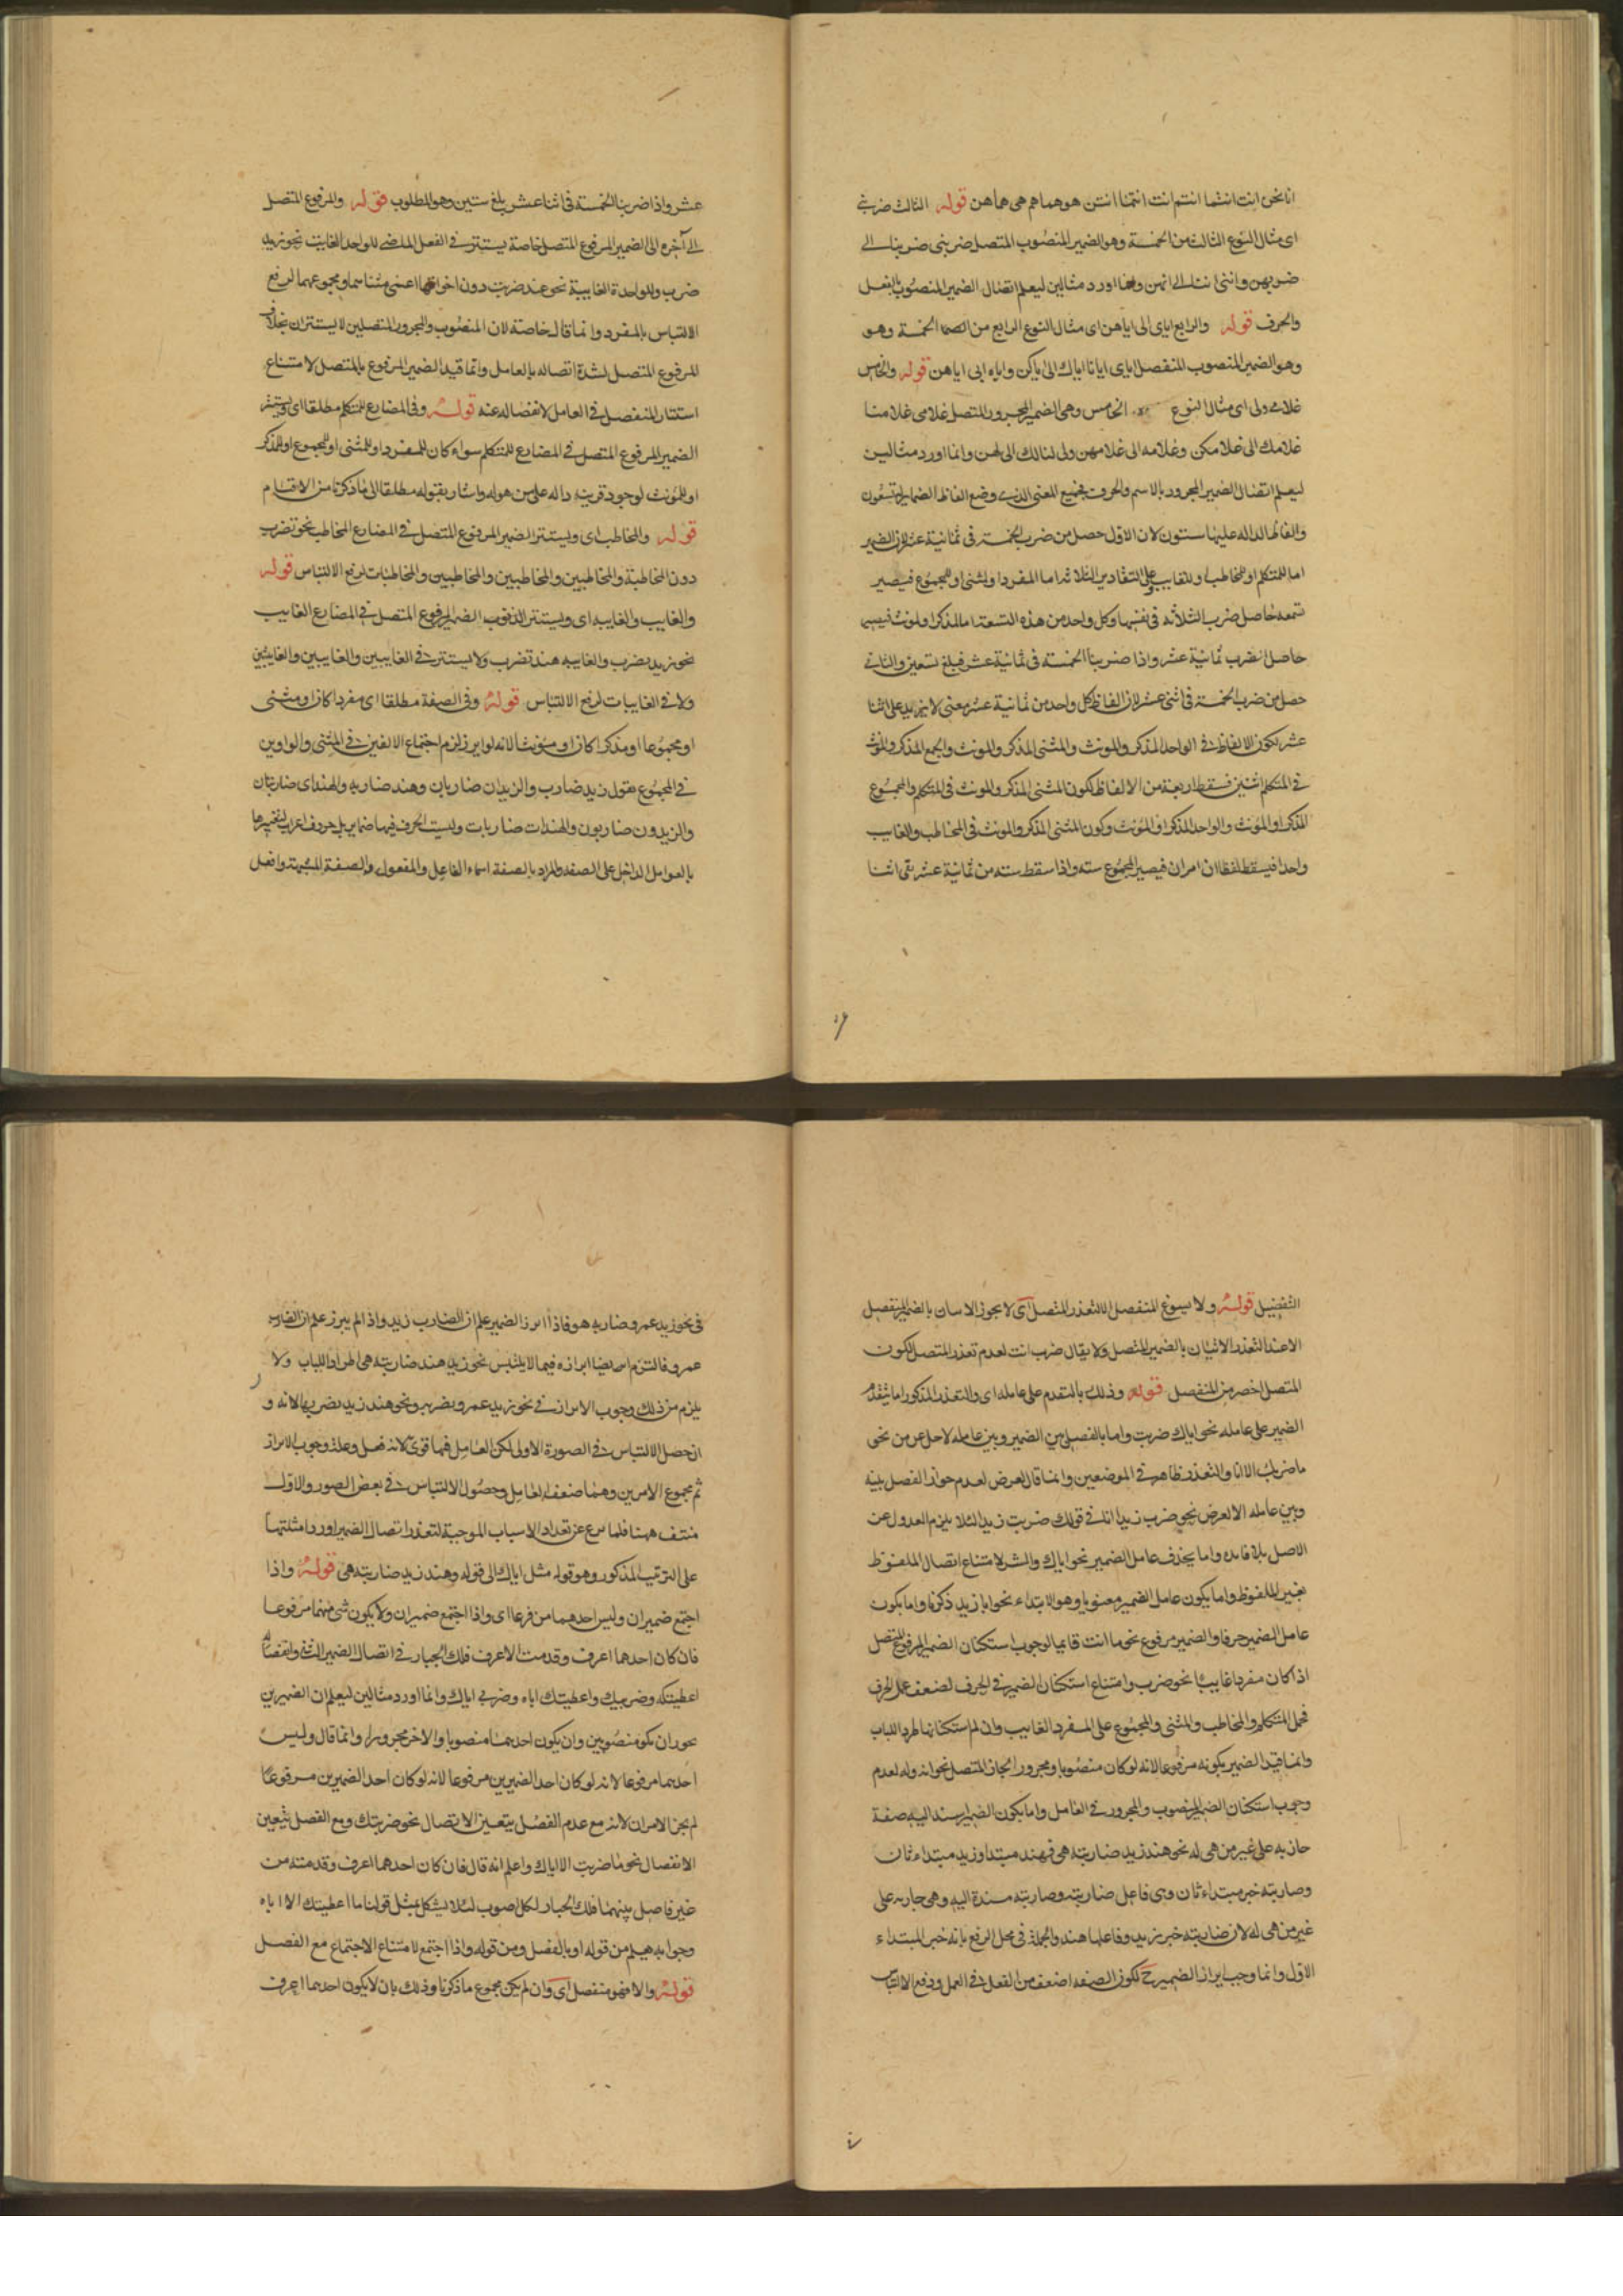 انا نحن انت انتما انتم انت انتما انتن هو هما هم هي هما هن قوله الثالث ضربني
اى مثال النوع الثالث من الخمسة وهو الضمير المنصوب المتصل ضربنى ضربنا الى
ضربهن وانني اننا الى انهن وانما اورد مثالين ليعلم اتصال الضمير المنصوب بالفعل
والحرف قوله والرابع اياى الى اياهن اى مثال النوع الرابع من الخمسة وهو
وهو الضمير المنصوب المنفصل اياى ايانا اياك الى اياكن واياه الى اياهن قوله والخامس
غلامى ولى اى مثال النوع الخامس وهى الضمير المجرور المتصل غلامى غلامنا
غلامك الى غلامكن وغلامه الى غلامهن ولى لنا لك الى لهن وانما اورد مثالين
ليعلم اتصال الضمير المجرور بالاسم والحرف فجميع المعنى الذى وضع الفاظ الضماير له تسعون
والفاظ الداله عليها ستون لان الاول حصل من ضرب الخمسة فى ثمانية عشر لان الضمير
اما للمتكلم او للمخاطب او للغايب وعلى التقادير الثلاثه اما المفرد او لمثنى او للمجموع فيصير
تسعه حاصل ضرب الثلاثه فى نفسها وكل واحد من هذه التسعة اما لمذكر او لمونث فيصير
حاصل الضرب ثمانية عشر واذا ضربنا الخمسة فى ثمانية عشر فبلغ تسعين والثانى
حصل من ضرب الخمسة فى اثنى عشر لان الفاظ كل واحد من ثمانية عشر معنى لا يزيد على اثنا
عشر لكون الالفاظ فى الواحد المذكر والمونث والمثنى المذكر والمونث والجمع المذكر والمونث
فى المتكلم اثنين فسقط اربعة من الالفاظ لكون المثنى المذكر والمونث فى المتكلم والمجموع
المذكر او المونث والواحد المذكر او المونث وكون المثنى المذكر والمونث فى المخاطب والغايب
واحدا فيسقط لفظان امران فيصير المجموع سته واذا سقط سته من ثمانية عشر بقى اثنا
عشر واذا ضربنا الخمسة فى اثنا عشر بلغ ستين وهو المطلوب قوله والمرفوع المتصل
الى آخره اى الضمير المرفوع المتصل خاصة يستتر فى الفعل الماضى للواحد الغايب نحو زيد
ضرب وللواحدة الغايبة نحو هند ضربت دون اخواتهما اعنى مثناهما ومجموعهما لرفع
الالتباس بالمفرد وانما قال خاصة لان المنصوب والمجرور المتصلين لا يستتران بخلاف
المرفوع المتصل لشدة اتصاله بالعامل وانما قيد الضمير المرفوع بالمتصل لامتناع
استتار المنفصل فى العامل لانفصاله عنه قوله وفى المضارع للمتكلم مطلقا اى ويستتر
الضمير المرفوع المتصل فى المضارع للمتكلم سواء كان للمفرد او للمثنى او للمجموع او للمذكر
او للمونث لوجود قرينة داله على من هو له واشار بقوله مطلقا الى ما ذكرنا من الاقسام
قوله والمخاطب اى ويستتر الضمير المرفوع المتصل فى المضارع المخاطب نحو تضرب
دون المخاطبة والمخاطبين والمخاطبين والمخاطبات لرفع الالتباس قوله
والغايب والغايبه اى ويستتر الضمير المرفوع المتصل فى المضارع الغايب
نحو زيد يضرب والغايبه هند تضرب ولا يستتر فى الغايبين والغايبين والغايبتين
ولا فى الغايبات لرفع الالتباس قوله وفى الصفة مطلقا اى مفردا كان او مثنى
او مجموعا او مذكرا كان او مونثا لانه لو ابرز لزم اجتماع الالفين فى المثنى والواوين
فى المجموع تقول زيد ضارب والزيدان ضاربان وهند ضاربه والهندان ضاربتان
والزيدون ضاربون والهندات ضاربات وليست الحرف فيها ضماير بل حروف اعراب لتغيرها
بالعوامل الداخل على الصفه والمراد بالصفة اسماء الفاعل والمفعول والصفة المشبهة وافعل
التفضيل قوله ولا يسوغ المنفصل الا لتعذر المتصل اى لا يجوز الاتيان بالضمير المنفصل
الا عند التعذر الاتيان بالضمير المتصل ولا يقال ضرب انت لعدم تعذر المتصل لكون
المتصل اخصر من المنفصل قوله وذلك بالتقدم على عامله اى والتعذر المذكور اما بتقدم
الضمير على عامله نحو اياك ضربت واما بالفصل بين الضمير وبين عامله لاجل عرض نحو
ما ضربك الا انا والتعذر ظاهر فى الموضعين وانما قال لعرض لعدم جواز الفصل بينه
وبين عامله الا لعرض نحو ضرب زيدا انا فى قولك ضربت زيدا لئلا يلزم العدول عن
الاصل بلا فايده واما يحذف عامل الضمير نحو اياك والشر لامتناع اتصال الملفوظ
بغير الملفوظ واما يكون عامل الضمير معنويا وهو الابتداء نحو انا زيد ذكرنا واما يكون
عامل الضمير حرفا والضمير مرفوع نحو ما انت قايما لوجوب استكنان الضمير المرفوع المتصل
اذا كان مفردا غايبا نحو ضرب وامتناع استكنان الضمير فى الحرف لضعف عمل الحرف
فحمل المتكلم والمخاطب والمثنى والمجموع على المفرد الغايب وان لم استكنانها طردا للباب
وانما قيد الضمير بكونه مرفوعا لانه لو كان منصوبا او مجرورا لجاز المتصل نحو انه وله لعدم
وجوب استكنان الضمير المنصوب والمجرور فى العامل واما يكون الضمير يسند اليه صفة
جاريه على غير من هى له نحو هند زيد ضاربته هى فهند مبتدا وزيد مبتداء ثان
وضاربته خبر مبتداء ثان وهى فاعل ضاربته وضاربته مسندة اليه وهى جاريه على
غير من هى له لان ضاربته خبر زيد وفاعلها هند والجملة فى محل الرفع بانه خبر المبتداء
الاول وانما وجب ابراز الضمير ح لكون الصفه اضعف من الفعل فى العمل ودفع الالتباس
فى نحو زيد عمرو ضاربه هو فاذا ابرز الضمير علم ان الضارب زيد واذا لم يبرز علم ان الضارب
عمرو فالتزم ايضا ابرازه فيما لا يلتبس نحو زيد هند ضاربته هى اطرادا للباب ولا
يلزم من ذلك وجوب الابراز فى نحو زيد عمرو يضربه ونحو هند زيد يضربها لانه و
ان حصل الالتباس فى الصورة الاولى لكن العامل فيها قوى لانه فعل وعلة وجوب الابراز
ثم مجموع الامرين وهما ضعف العامل وحصول الالتباس فى بعض الصور والاول
منتف ههنا فلما فرغ عن تعداد الاسباب الموجبة لتعذر اتصال الضمير اورد امثلتها
على الترتيب المذكور وهو قوله مثل اياك الى قوله وهند زيد ضاربته هى قوله واذا
اجتمع ضميران وليس احدهما مرفوعا اى واذا اجتمع ضميران ولا يكون شئ منهما مرفوعا
فان كان احدهما اعرف وقدمت الاعرف فلك الخيار فى اتصال الضمير الثانى وانفصاله
اعطيتكه وضربيك واعطيتك اياه وضربى اياك وانما اورد مثالين ليعلم ان الضميرين
يجوز ان يكونا منصوبين وان يكون احدهما منصوبا والاخر مجرورا وانما قال وليس
احدهما مرفوعا لانه لو كان احد الضميرين مرفوعا لانه لو كان احد الضميرين مرفوعا
لم يجز الامران لانه مع عدم الفصل يتعين الاتصال نحو ضربتك ومع الفصل يتعين
الانفصال نحو ما ضربت الا اياك واعلم انه قال فان كان احدهما اعرف وقدمته من
غير فاصل بينهما فلك الخيار لكان اصوب لئلا يشكل بمثل قولنا ما اعطيتك الا اياه
وجوابه يعلم من قوله او بالفصل ومن قوله واذا اجتمع لامتناع الاجتماع مع الفصل
قوله والا فهو منفصل اى وان لم يكن مجموع ما ذكرنا وذلك بان لا يكون احدهما اعرف